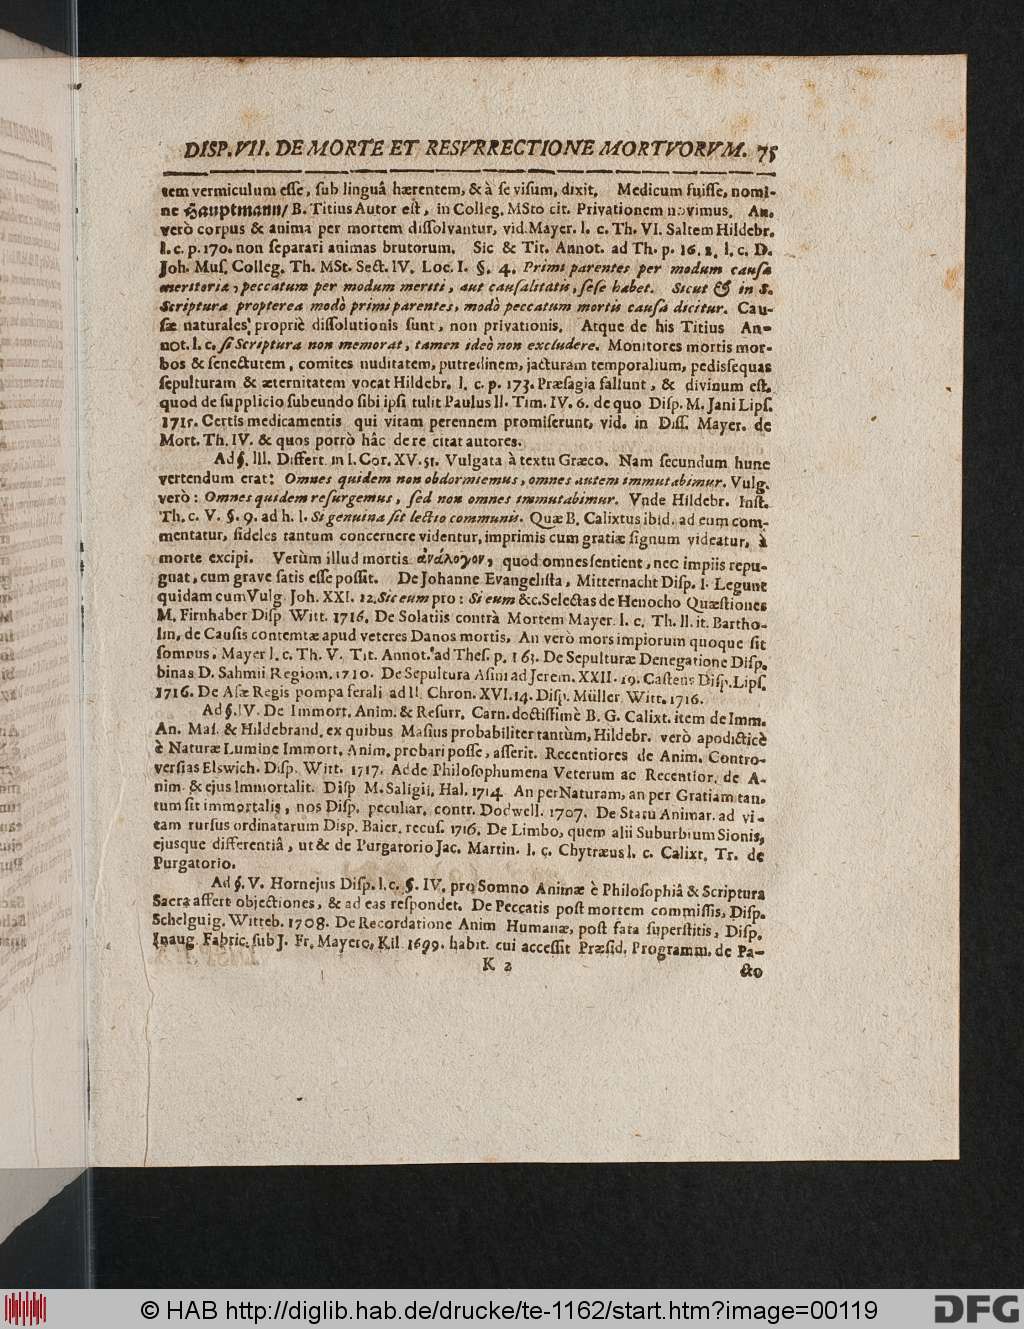 DISP. VII. DE MORTE ET RESVRRECTIONE MORTVORVM. 75
tem vermiculum esse, sub linguâ hærentem, & à se visum, dixit. Medicum fuisse, nomi-
ne Hauptmann/ B. Titius Autor est, in Colleg. MSto cit. Privationem novimus. An.
verò corpus & anima per mortem dissolvantur, vid. Mayer. l. c. Th. VI. Saltem Hildebr.
l. c. p. 170. non separari animas brutorum. Sic & Tit. Annot. ad Th. p. 16. 2. l. c. D.
Joh. Mus. Colleg. Th. MSt. Sect. IV. Loc. I. §. 4. Primi parentes per modum causæ
meritoriæ, peccatum per modum meriti, aut causalitatis, sese habet. Sicut & in S.
Scriptura propterea modò primi parentes, modò peccatum mortis causa dicitur. Cau-
sæ naturales, propriè dissolutionis sunt, non privationis. Atque de his Titius An-
not. l. c. si Scriptura non memorat, tamen ideò non excludere. Monitores mortis mor-
bos & senectutem, comites nuditatem, putredinem, jacturam temporalium, pedissequas
sepulturam & æternitatem vocat Hildebr. l. c. p. 173. Præsagia fallunt, & divinum est,
quod de supplicio subeundo sibi ipsi tulit Paulus II. Tim. IV. 6. de quo Disp. M. Jani Lips.
1715. Certis medicamentis qui vitam perennem promiserunt, vid. in Diss. Mayer. de
Mort. Th. IV. & quos porrò hâc de re citat autores.
Ad §. III. Differt in I. Cor. XV. 51. Vulgata à textu Græco. Nam secundum hunc
vertendum erat: Omnes quidem non obdormiemus, omnes autem immutabimur. Vulg.
verò: Omnes quidem resurgemus, sed non omnes immutabimur. Vnde Hildebr. Inst.
Th. c. V. §. 9. ad h. l. Si genuina sit lectio communis. Quæ B. Calixtus ibid. ad eum com-
mentatur, fideles tantum concernere videntur, imprimis cum gratiæ signum videatur, à
morte excipi. Verùm illud mortis ἀνάλογον, quod omnes sentient, nec impiis repu-
gnat, cum grave satis esse possit. De Johanne Evangelista, Mitternacht Disp. I. Legunt
quidam cum Vulg. Joh. XXI. 22. Sic eum pro: Si eum &c. Selectas de Henocho Quæstiones
M. Firnhaber Disp Witt. 1716. De Solatiis contrà Mortem Mayer. l. c. Th. II. it. Bartho-
lin, de Causis contemtæ apud veteres Danos mortis. An verò mors impiorum quoque sit
somnus. Mayer l. c. Th. V. Tit. Annot. ad Thes. p. 163. De Sepulturæ Denegatione Disp.
binas D. Sahmii Regiom. 1710. De Sepultura Asini ad Jerem. XXII. 19. Castens Disp. Lips.
1716. De Asæ Regis pompa ferali ad II. Chron. XVI. 14. Disp. Müller Witt. 1716.
Ad §. IV. De Immort. Anim. & Resurr. Carn. doctissimè B. G. Calixt. item de Imm.
An. Mas. & Hildebrand, ex quibus Masius probabiliter tantùm, Hildebr. verò apodicticè
è Naturæ Lumine Immort. Anim. probari posse, asserit. Recentiores de Anim. Contro-
versias Elswich. Disp. Witt. 1717. Adde Philosophumena Veterum ac Recentior. de A-
nim. & ejus Immortalit. Disp M. Saligii, Hal. 1714 An per Naturam, an per Gratiam tan-
tum sit immortalis, nos Disp. peculiar. contr. Dodwell. 1707. De Statu Animar. ad vi-
tam rursus ordinatarum Disp. Baier. recus. 1716. De Limbo, quem alii Suburbium Sionis,
ejusque differentiâ, ut & de Purgatorio Jac. Martin. l. c. Chytræus l. c. Calixt. Tr. de
Purgatorio.
Ad §. V. Hornejus Disp. l. c. §. IV. pro Somno Animæ è Philosophiâ & Scriptura
Sacra affert objectiones, & ad eas respondet. De Peccatis post mortem commissis, Disp.
Schelguig. Witteb. 1708. De Recordatione Anim Humanæ, post fata superstitis, Disp.
Inaug. Fabric. sub J. Fr. Mayero, Kil 1699. habit. cui accessit Præsid. Programm. de Pa-
K 2
cto
© HAB http://diglib.hab.de/drucke/te-1162/start.htm?image=00119
DFG